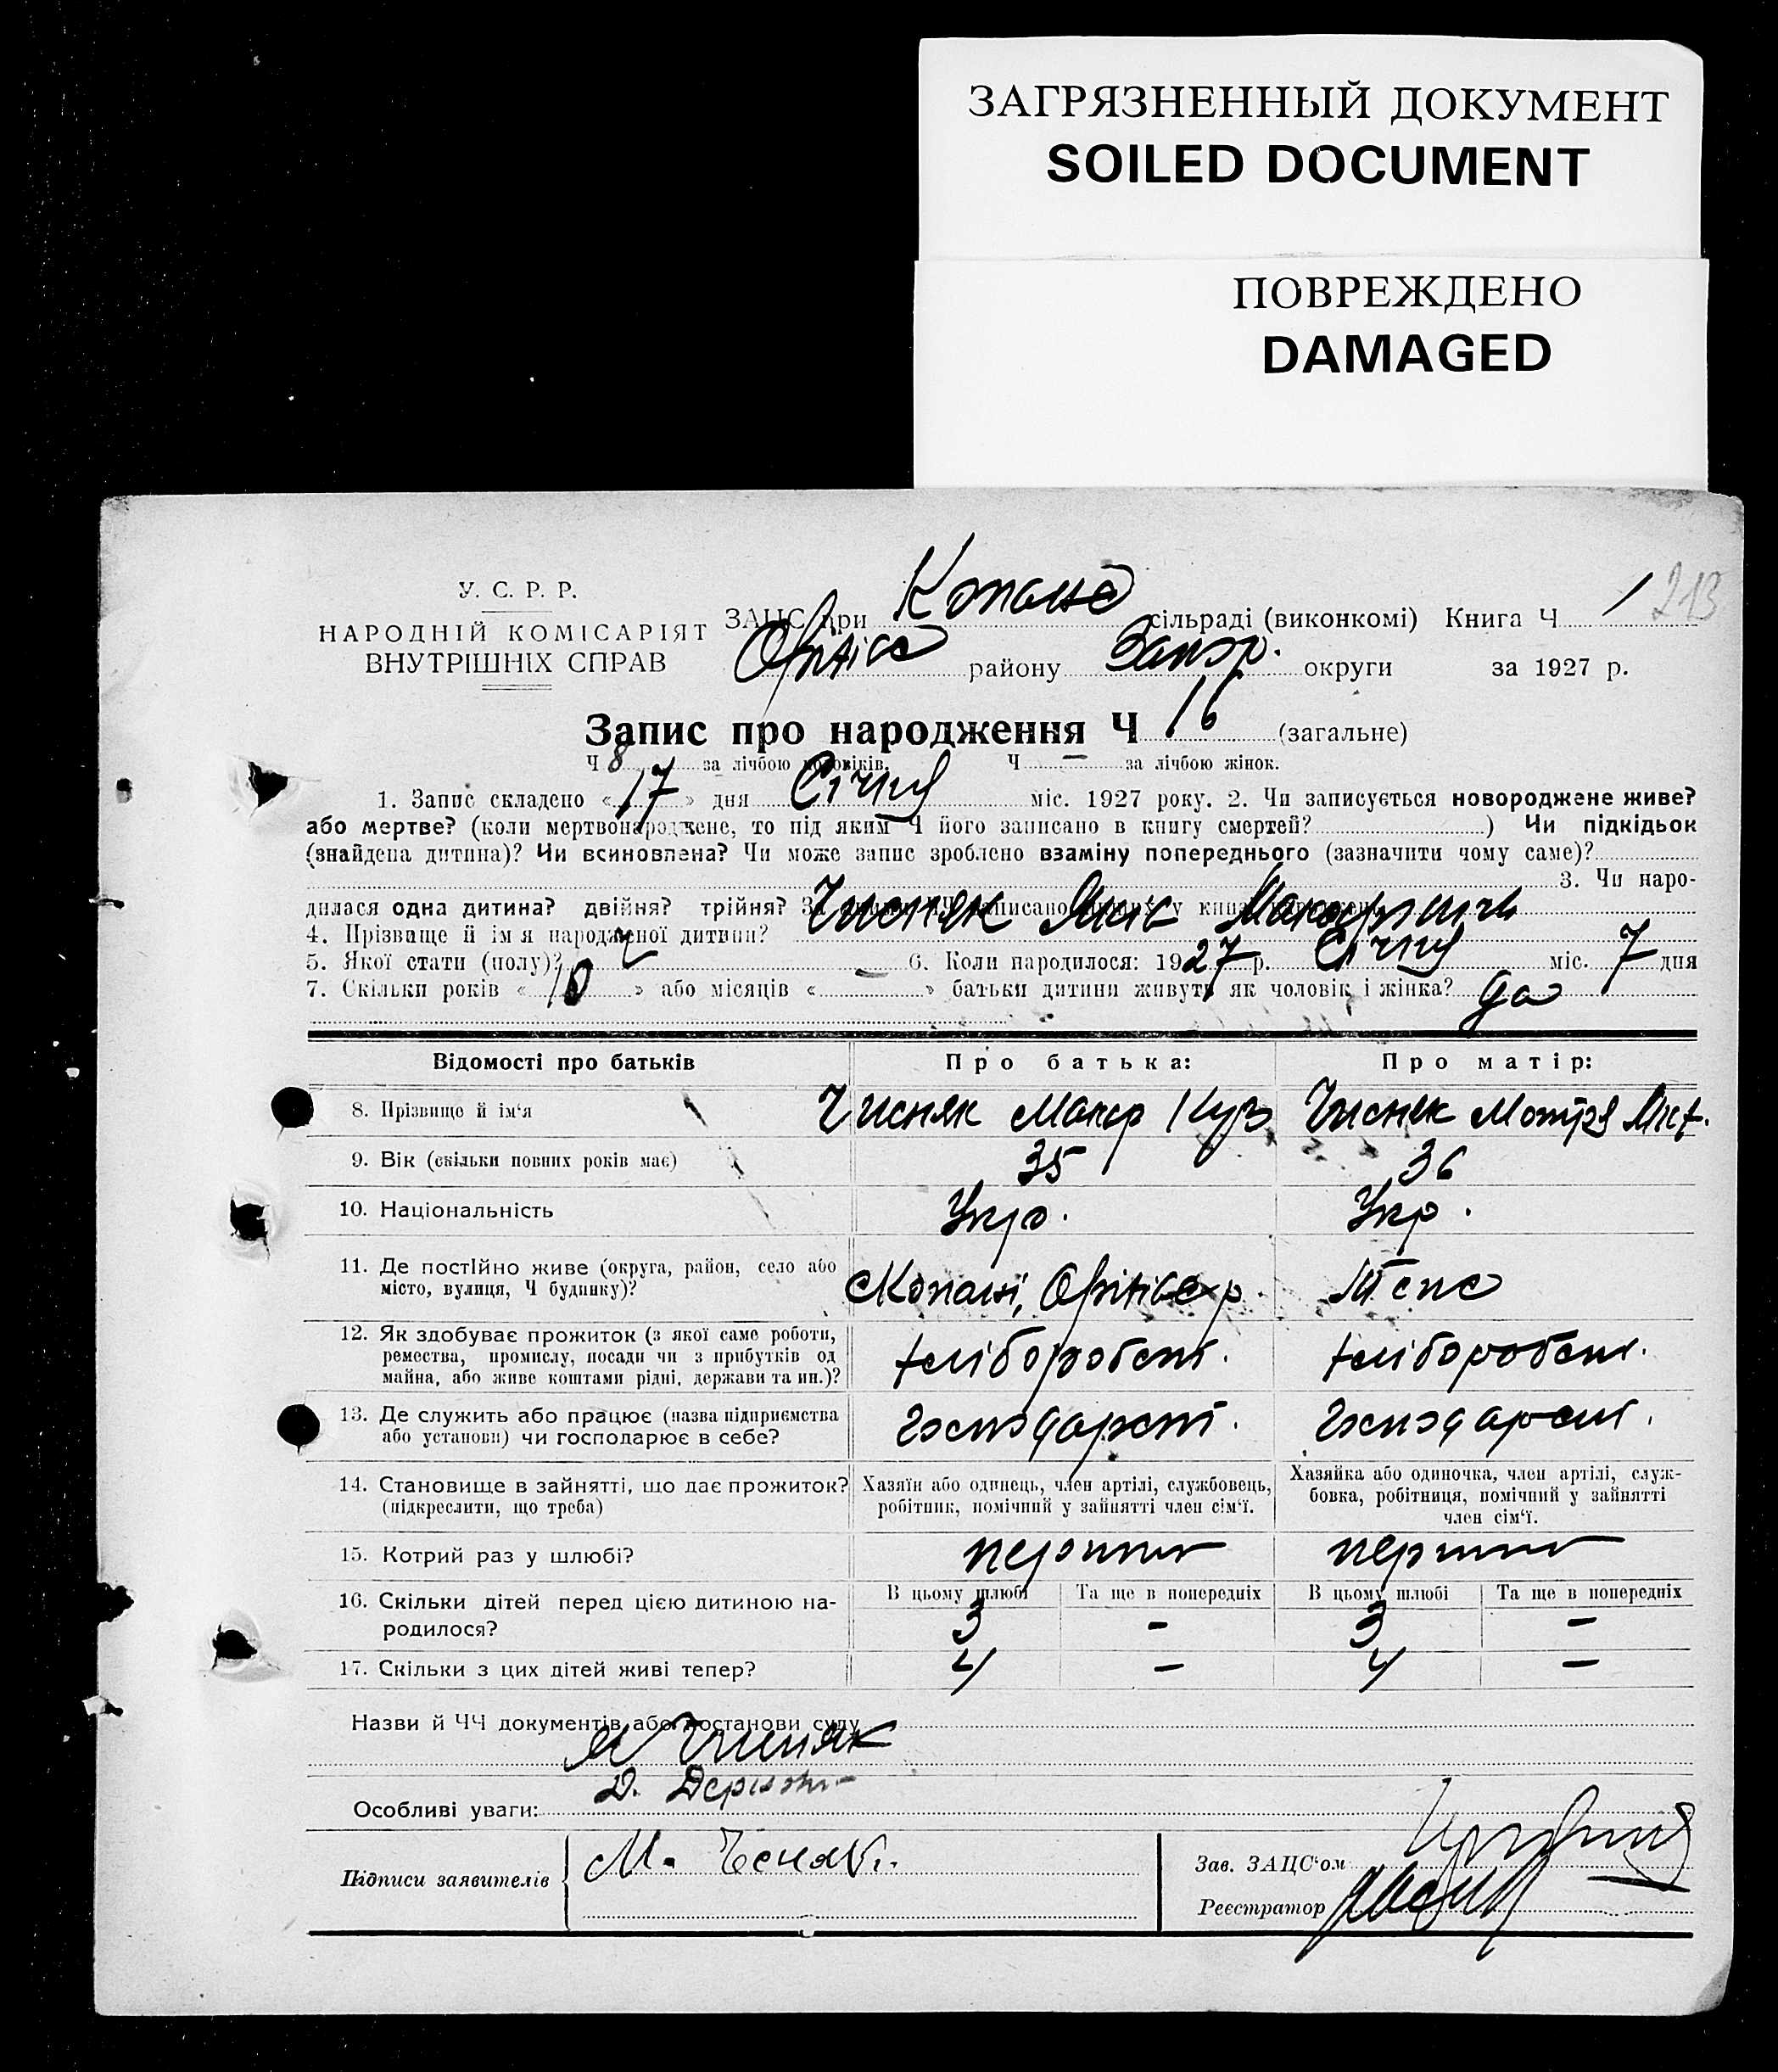 ЗАГРЯЗНЕННЫЙ ДОКУМЕНТ
SOILED DOCUMENT
ПОВРЕЖДЕНО
DAMAGED
У. С. Р. Р.
НАРОДНІЙ КОМІСАРІЯТ
ВНУТРІШНІХ СПРАВ
ЗАЦС при сільраді (виконкомі) Книга Ч 1 213
району Запор. округи за 1927 р.
Запис про народження Ч 16 (загальне)
Ч 8 за лічбою чоловіків. Ч — за лічбою жінок.
1. Запис складено « 17 » дня Січня міс. 1927 року. 2. Чи записується новороджене живе?
або мертве? (коли мертвонароджене, то під яким Ч його записано в книгу смертей? ) Чи підкідьок
(знайдена дитина)? Чи всиновлена? Чи може запис зроблено взаміну попереднього (зазначити чому саме)?
3. Чи наро-
дилася одна дитина? двійня? трійня?
4. Прізвище й ім я народженої дитини? Чисняк
5. Якої стати (полу)? ч 6. Коли народилося: 1927 р. Січня міс. 7 дня
7. Скільки років « 10 » або місяців « — » батьки дитини живуть як чоловік і жінка? да
Відомості про батьків Про батька: Про матір:
8. Прізвище й ім‘я Чисняк Макар Куз Чисняк Мотря
9. Вік (скільки повних років має) 35 36
10. Національність Укр. Укр.
11. Де постійно живе (округа, район, село або
місто, вулиця, Ч будинку)? Копані,
12. Як здобуває прожиток (з якої саме роботи,
ремества, промислу, посади чи з прибутків од
майна, або живе коштами рідні, держави та ин.)? хліборобст. хліборобст.
13. Де служить або працює (назва підприємства
або установи) чи господарює в себе? господарст. господарст.
14. Становище в зайнятті, що дає прожиток?
(підкреслити, що треба)
Хазяїн або одинець, член артілі, службовець,
робітник, помічний у зайнятті член сім‘ї.
Хазяйка або одиночка, член артілі, служ-
бовка, робітниця, помічний у зайнятті
член сім‘ї.
15. Котрий раз у шлюбі?
В цьому шлюбі Та ще в попередніх В цьому шлюбі Та ще в попередніх
16. Скільки дітей перед цією дитиною на-
родилося? 3 — 3 —
17. Скільки з цих дітей живі тепер? 4 — 4 —
Назви й ЧЧ документів або постанови суду
М Чисняк
Особливі уваги:
Підписи заявителів М.
Зав. ЗАЦС‘ом
Реєстратор